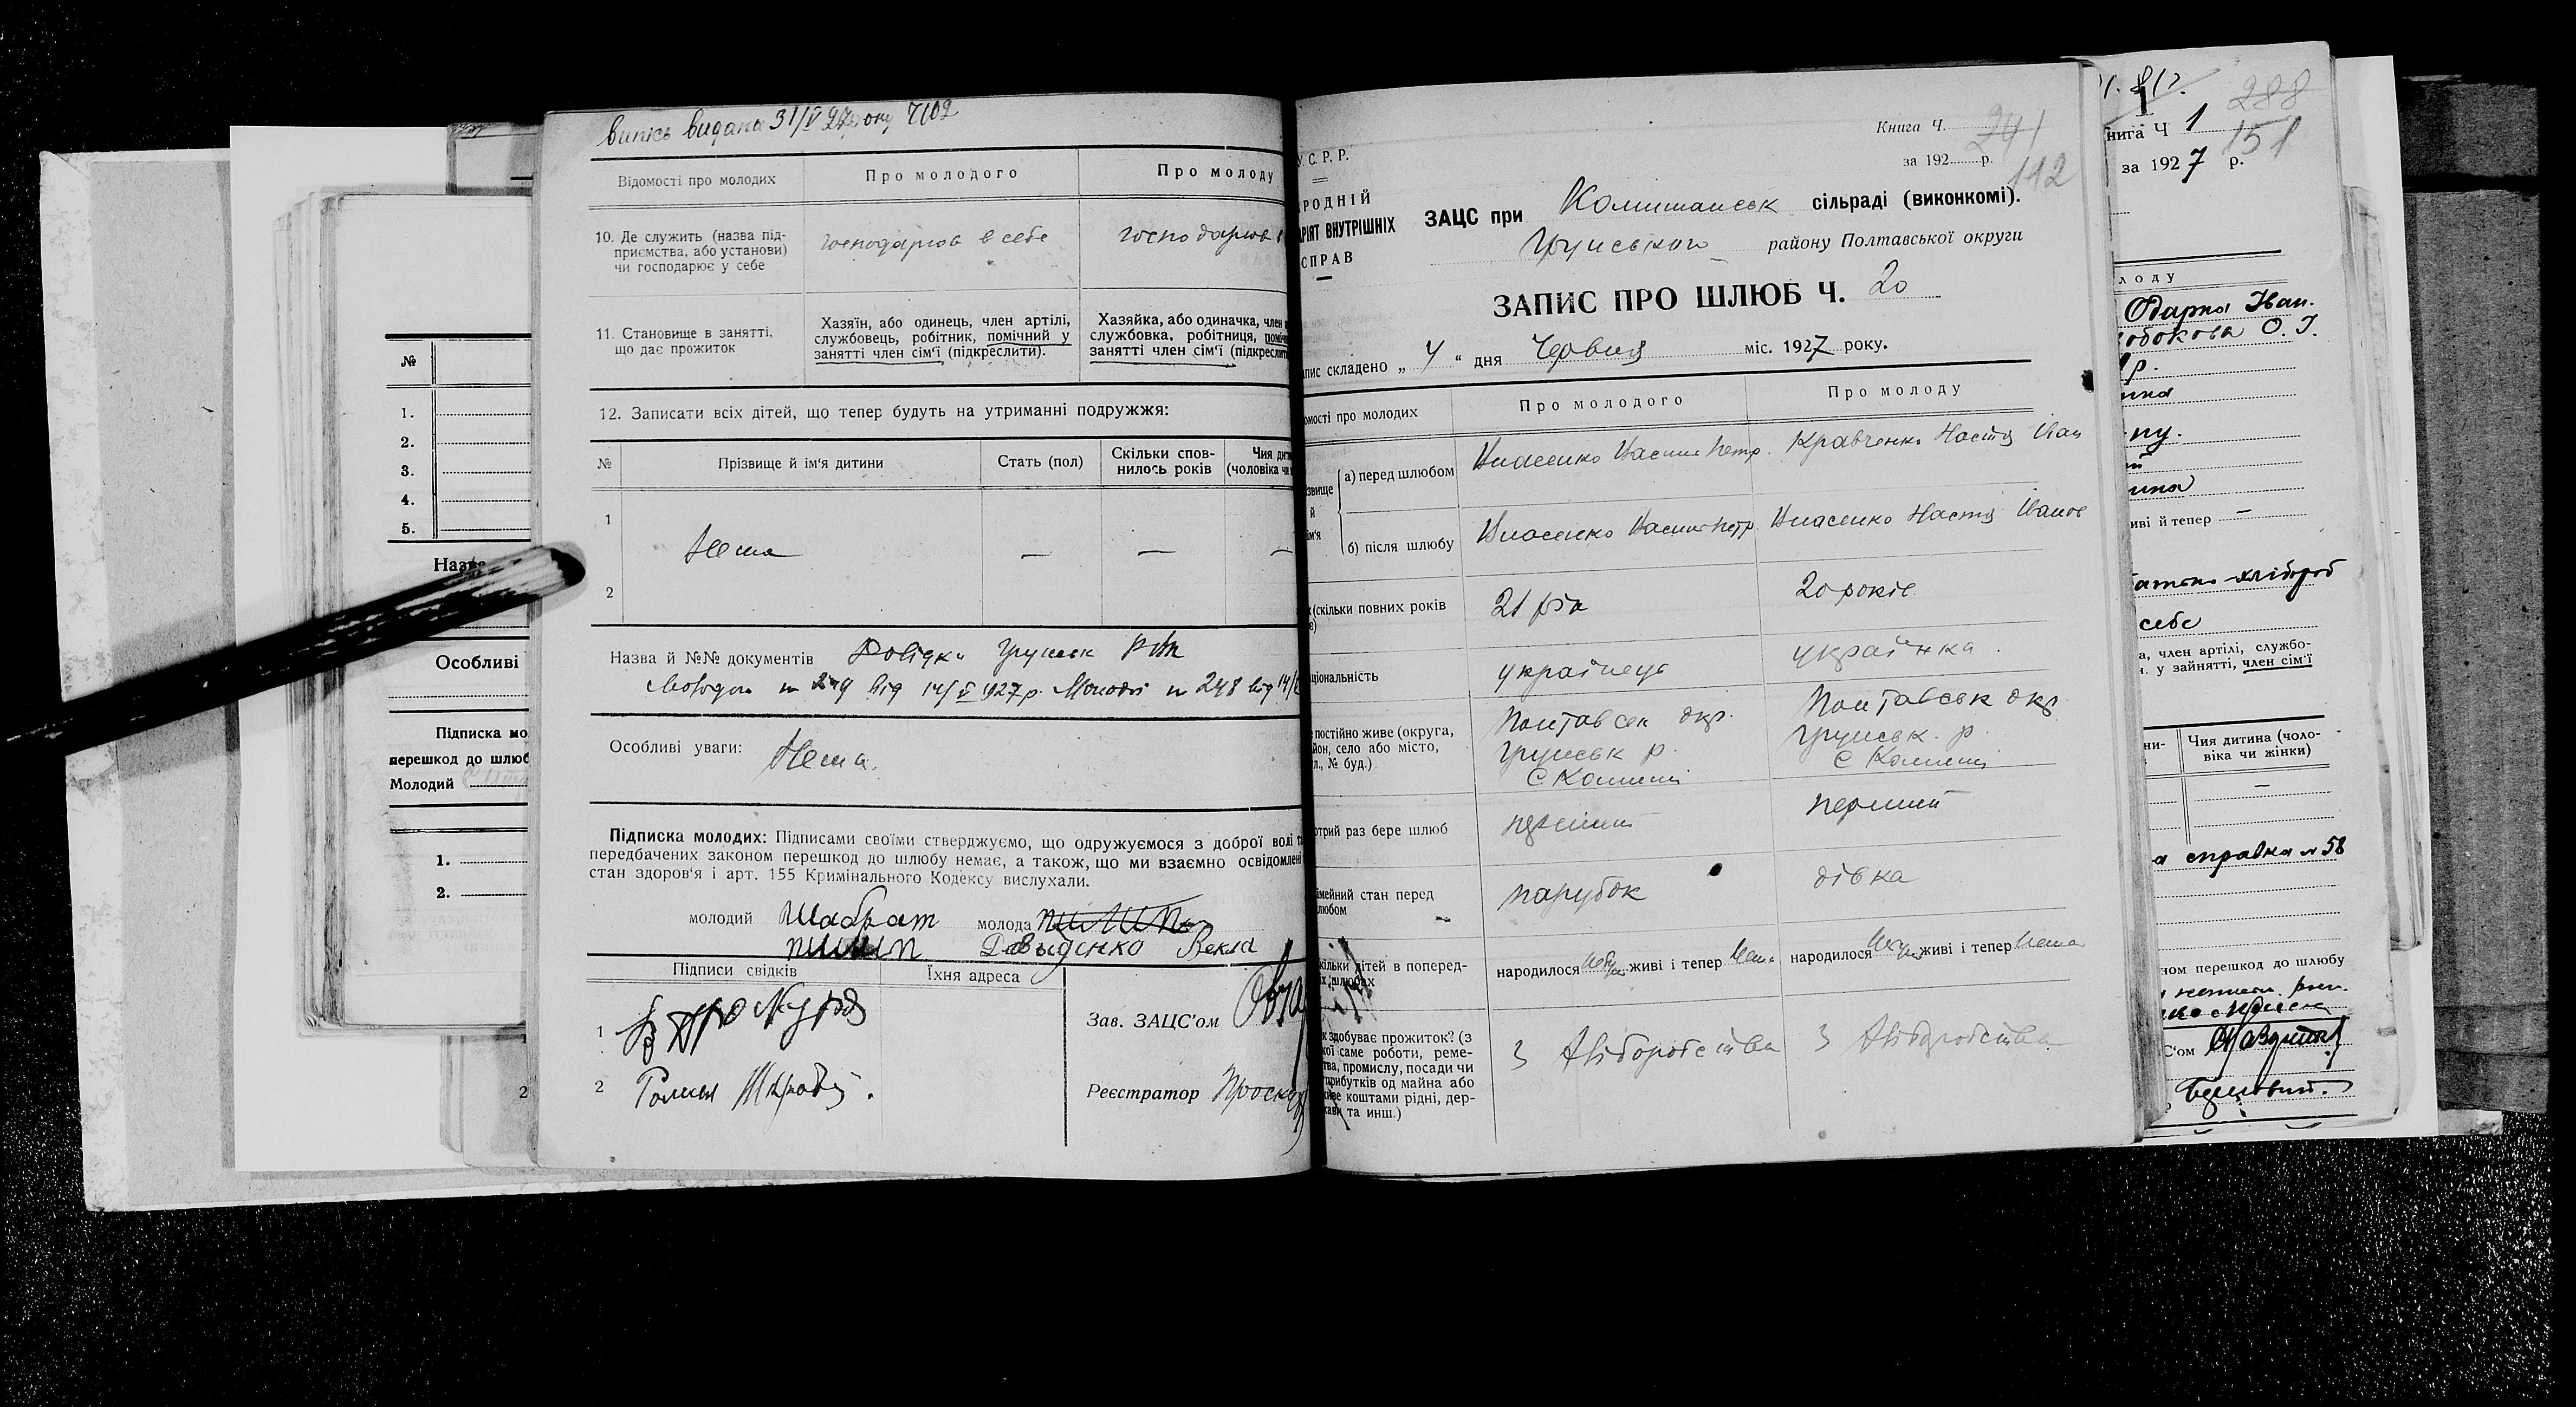 №
1.
2.
3.
4.
5.
Назва
Особливі
Підписка мо
перешкод до шлюб
Молодий
1.
2.
2
випісь видана 31/V 27 року Ч102
Відомості про молодих
Про молодого
Про молоду
10. Де служить (назва під-
приємства, або установи)
чи господарює у себе
господарює в себе
господарює
11. Становище в занятті,
що дає прожиток
Хазяїн, або одинець, член артілі,
службовець, робітник, помічний у
занятті член сім'ї (підкреслити).
Хазяйка, або одиначка, член
службовка, робітниця, поміч
занятті член сім'ї (підкреслит
12. Записати всіх дітей, що тепер будуть на утриманні подружжя:
№
Прізвище й ім'я дитини
Стать (пол)
Скільки спов-
нилось років
Чия дит
(чоловіка чи
1
Нема — — —
2
Назва й №№ документів Довідки Грунськ
Молодого № від 14/V 1927 р. Молодої № 248 від 14/
Особливі уваги: Нема.
Підписка молодих: Підписами своїми стверджуємо, що одружуємося з доброї волі т
передбачених законом перешкод до шлюбу немає, а також, що ми взаємно освідомлені
стан здоров'я і арт. 155 Кримінального Кодексу вислухали.
молодий Шабрат молода
пилип Давыденко Векла
Підписи свідків
Їхня адреса
1
2 Роман
Зав. ЗАЦС'ом
Реєстратор Проску
У.С.Р.Р.
РОДНІЙ
РІЯТ ВНУТРІШНІХ
СПРАВ
Книга Ч. 241
за 192 р.
112
ЗАЦС при Комишанськ сільраді (виконкомі).
Грунського району Полтавської округи
ЗАПИС ПРО ШЛЮБ Ч. 20
пис складено „ 4 “ дня Червня міс. 1927 року.
омості про молодих
Про молодого
Про молоду
звище
й
ім'я
а) перед шлюбом
Власенко Василь Петр.
Кравченко Настя Іван
б) після шлюбу
Власенко Василь Петр.
Власенко Настя Іванов
(скільки повних років
21 рік
20 років
ціональність
українець
українка.
постійно живе (округа,
йон, село або місто,
л., № буд.)
Полтавськ окр.
Грунськ р.
С Комиші
Полтавськ окр
Грунськ. р.
С Комиші
отрий раз бере шлюб
перший
перший
імейний стан перед
любом
парубок
дівка
кільки дітей в поперед-
х шлюбах
народилося живі і тепер Нема
народилося живі і тепер Нема
к здобуває прожиток? (з
кої саме роботи, реме-
тва, промислу, посади чи
прибутків од майна або
живе коштами рідні, дер-
жави та инш.)
З Хліборобства
З Хліборобства
288
нига Ч 1
151
за 1927 р.
лоду
Одарка Іван.
О. І.
р.
ину.
иві й тепер —
хлібороб
себе
а, член артілі, службо-
. у зайнятті, член сім'ї
ни-
Чия дитина (чоло-
віка чи жінки)
—
а справка № 58
ном перешкод до шлюбу
С'ом